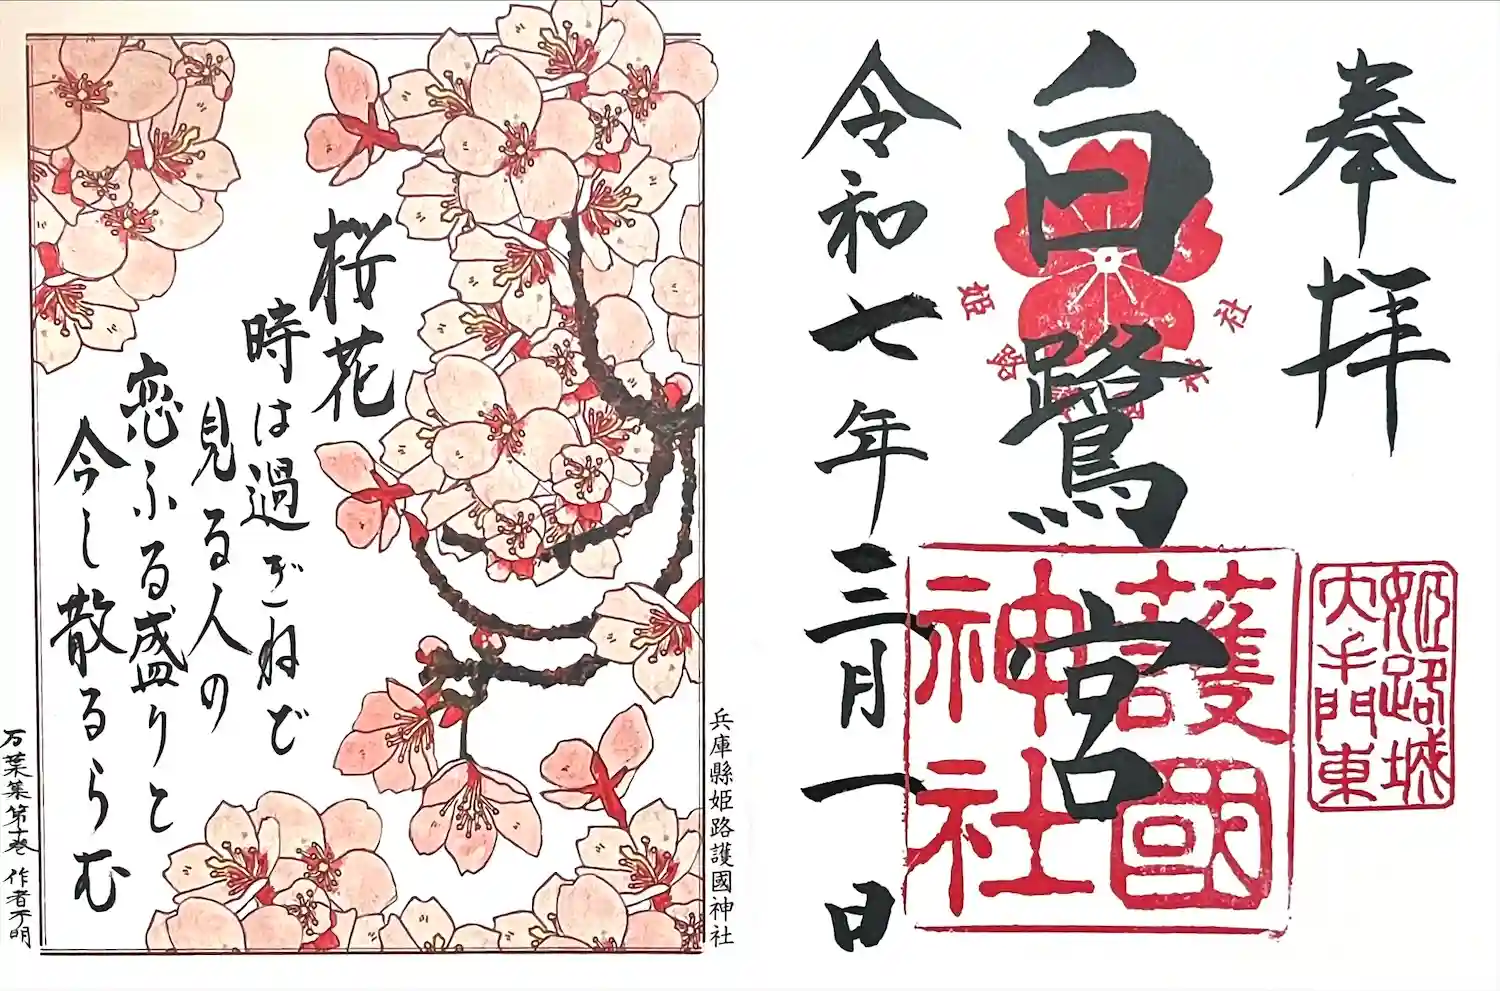 奉拝
姫路城
大手門東
白鷺宮
護國
神社
令和七年三月一日
兵庫縣姫路護國神社
桜花
時は過ぎねど
見る人の
恋ふる盛りと
今し散るらむ
万葉集第十巻 作者不明